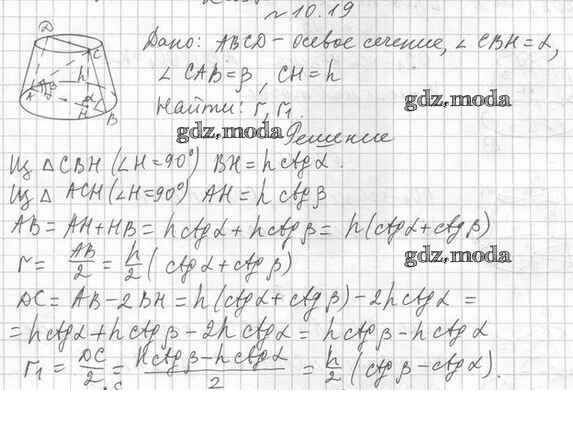 №10.19
Дано: ABCD - осевое сечение, ∠CBH = α,
∠CAB = β, CH = h
Найти: r, r₁.
gdz.moda
gdz.moda
Решение
Из △CBH (∠H=90°) BH = h ctg α.
Из △ACH (∠H=90°) AH = h ctg β
AB = AH + HB = h ctg α + h ctg β = h (ctg α + ctg β)
r = AB/2 = h/2 (ctg α + ctg β)
gdz.moda
DC = AB - 2BH = h (ctg α + ctg β) - 2h ctg α =
= h ctg α + h ctg β - 2h ctg α = h ctg β - h ctg α
r₁ = DC/2 = (h ctg β - h ctg α)/2 = h/2 (ctg β - ctg α).
D
C
h
A
β
α
H
B